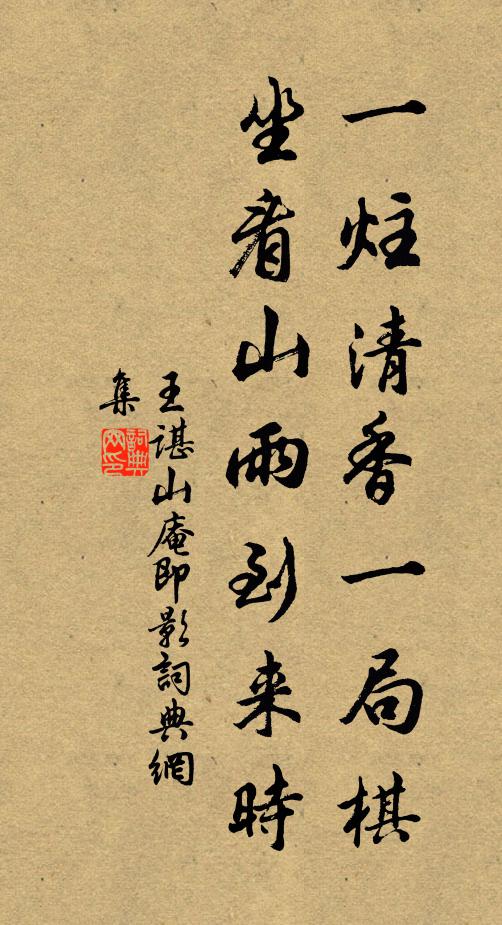 一炷清香一局棋
坐看山雨到来時
王諶山庵即影詞典網
集
詞典網印